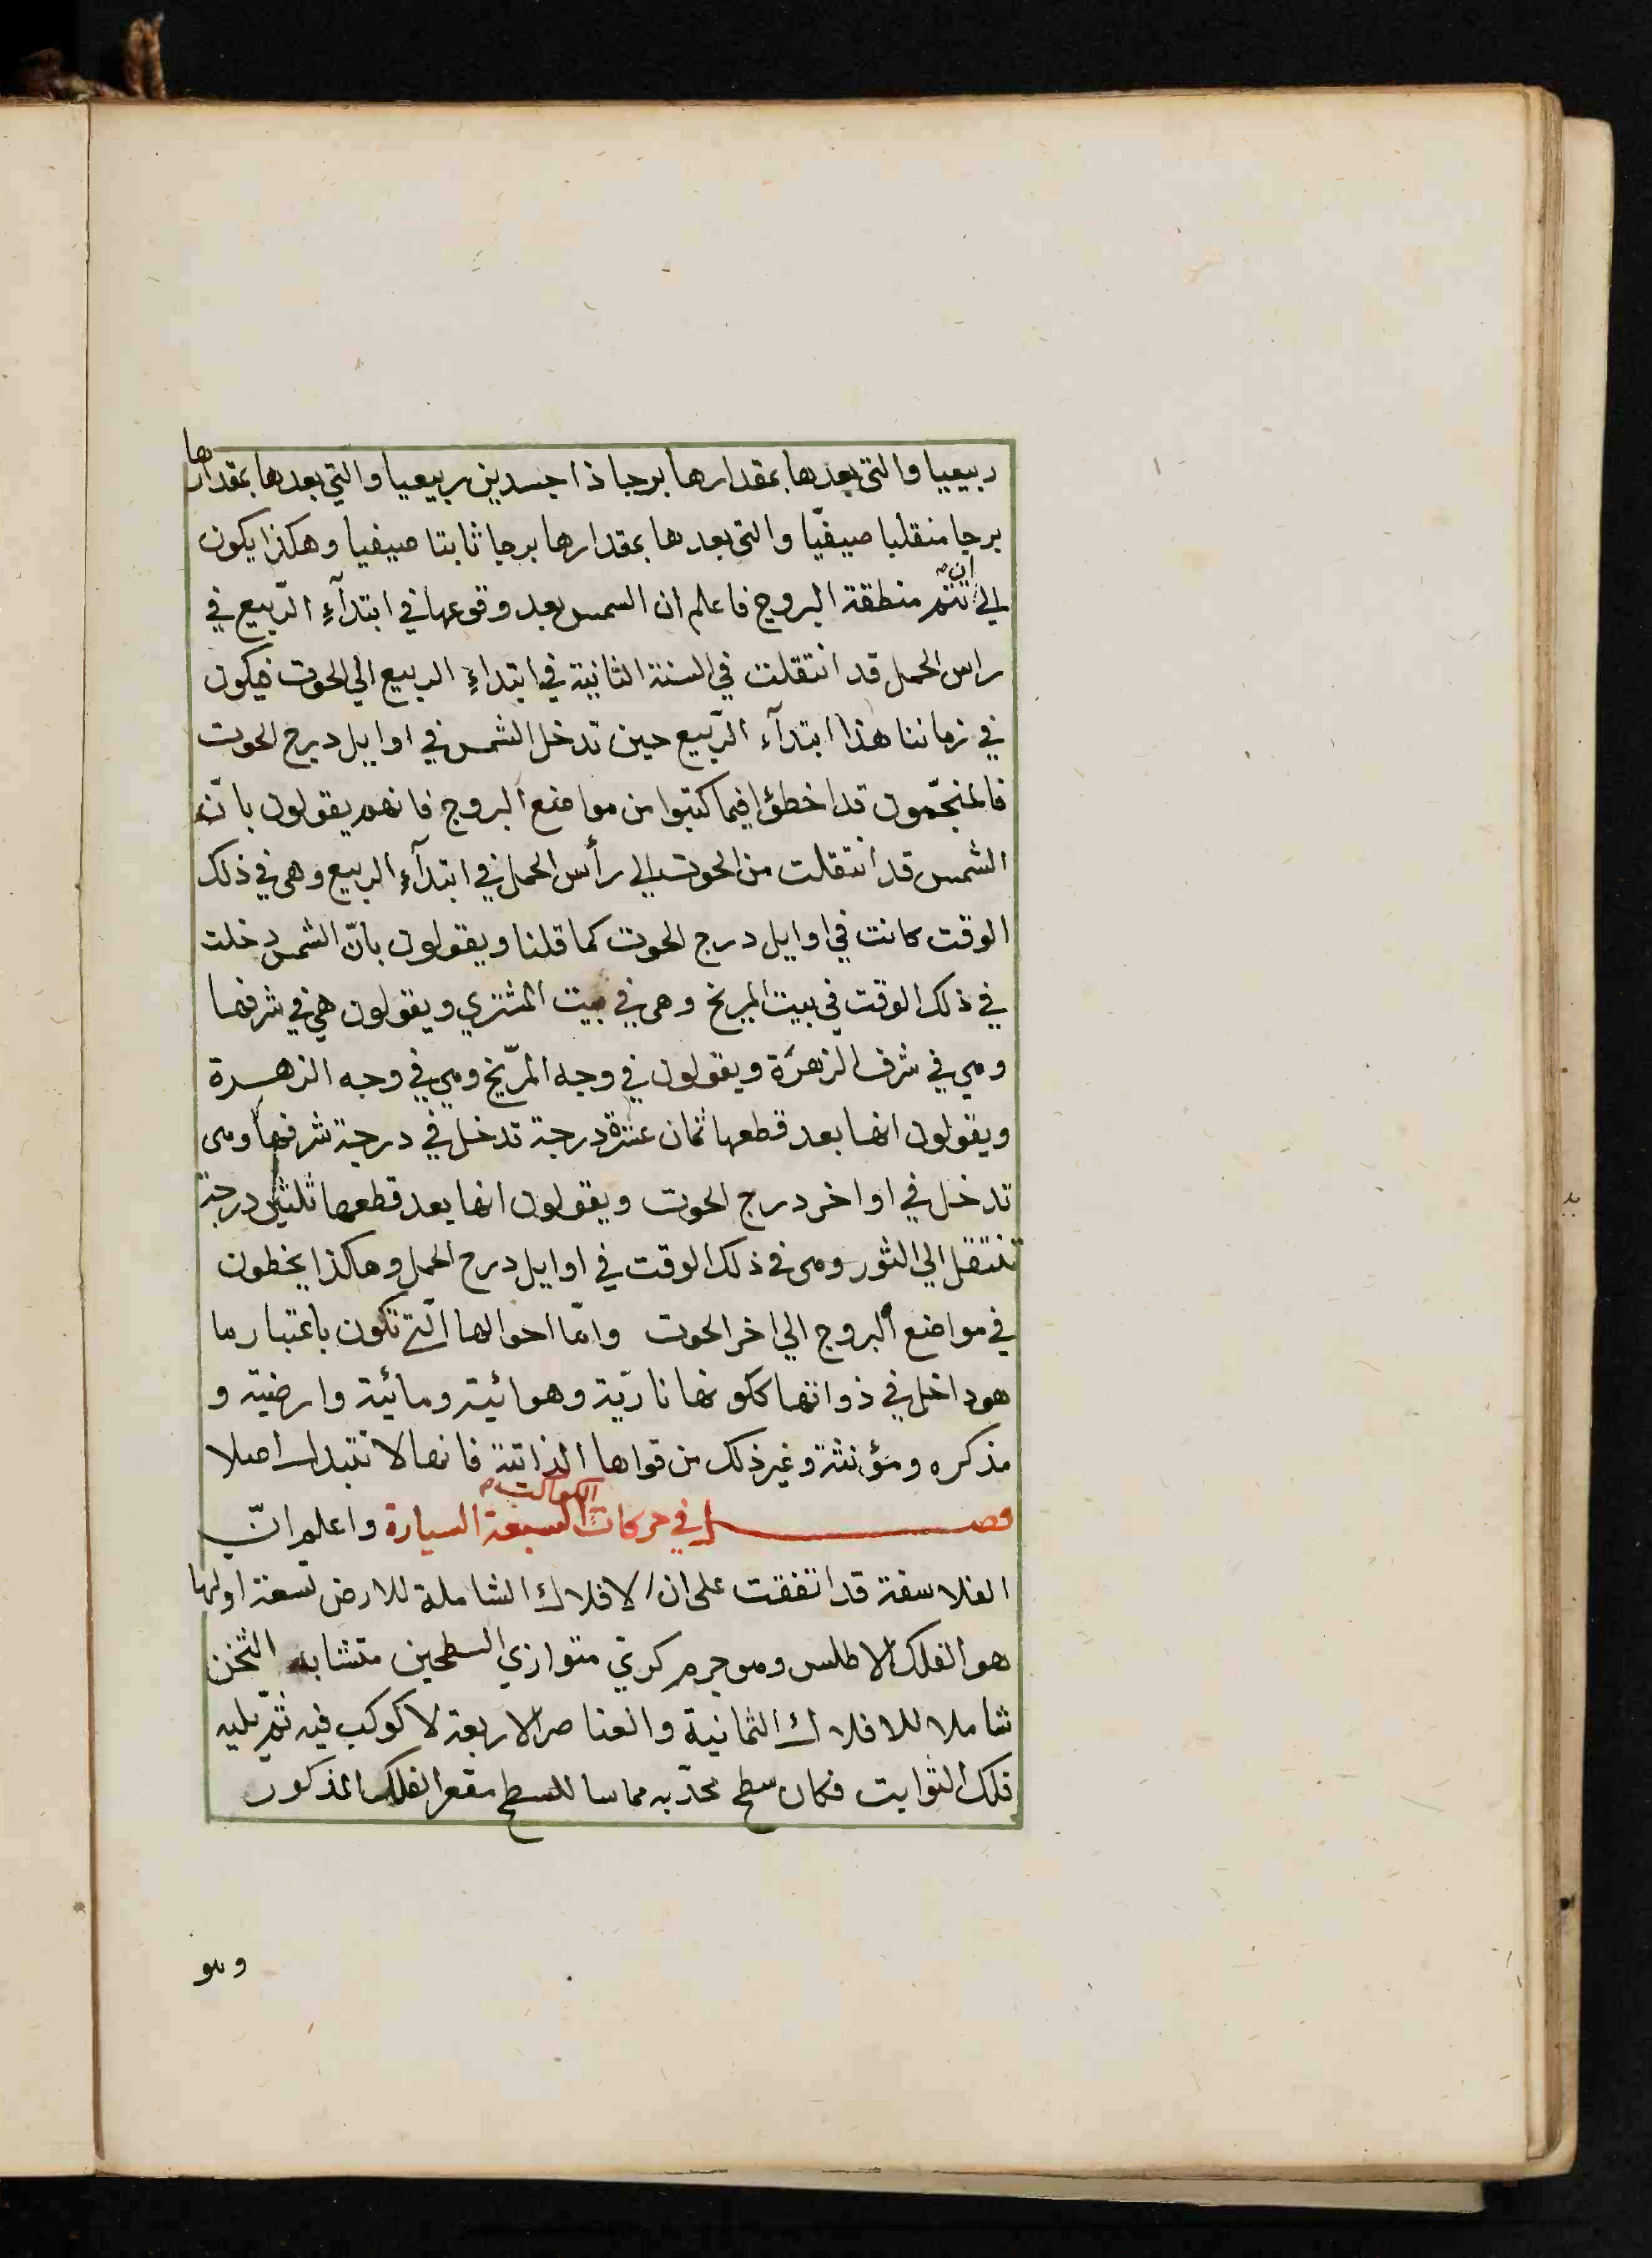 ربيعيا والتى بعدها بمقدارها برجا ذا جسدين ربيعيا والتي بعدها بمقدارها
برجا منقلبا صيفيّا والتى بعدها بمقدارها برجا ثابتا صيفيا وهكذا يكون
الي ان تتم منطقة البروج فاعلم ان الشمس بعد وقوعها في ابتدآءِ الرّبيع في
راس الحمل قد انتقلت في السنة الثانية في ابتداءِ الربيع الي الحوت فيكون
في زماننا هذا ابتدآء الرّبيع حين تدخل الشمس في اوايل درج الحوت
فالمنجّمون قد اخطؤا فيما كتبوا من مواضع البروج فانهم يقولون بانّ
الشمس قد انتقلت من الحوت الي رأس الحمل في ابتدآءِ الربيع وهى في ذلك
الوقت كانت في اوايل درج الحوت كما قلنا ويقولون بانّ الشمس دخلت
في ذلك الوقت في بيت المريخ وهى في بيت المشتري ويقولون هي في شرفها
وهي في شرف الزهرة ويقولون في وجه المرّيخ وهي في وجه الزهرة
ويقولون انها بعد قطعها ثمان عشرة درجة تدخل في درجة شرفها وهى
تدخل في اواخر درج الحوت ويقولون انها بعد قطعها ثلثين درجة
تنتقل الي الثور وهى في ذلك الوقت في اوايل درج الحمل وهاكذا يخطون
في مواضع البروج الي اخر الحوت وامّا احوالها الّتي تكون باعتبار ما
هو داخل في ذواتها ككونها ناريّة وهوائية ومائية وارضية و
مذكره ومؤنثة وغير ذلك من قواها الذاتية فانها لا تتبدل اصلا
فصل في حركات الكواكب السبعة السيارة واعلم انّ
الفلاسفة قد اتفقت على ان الافلاك الشاملة للارض تسعة اولها
هو الفلك الاطلس وهو جرم كري متوازي السطحين متشابه الثخن
شاملا للافلاك الثمانية والعناصر الاربعة لا كوكب فيه ثمّ يليه
فلك الثوابت فكان سطح محدّبه مماسا للسطح مقعر الفلك المذكور
وهو